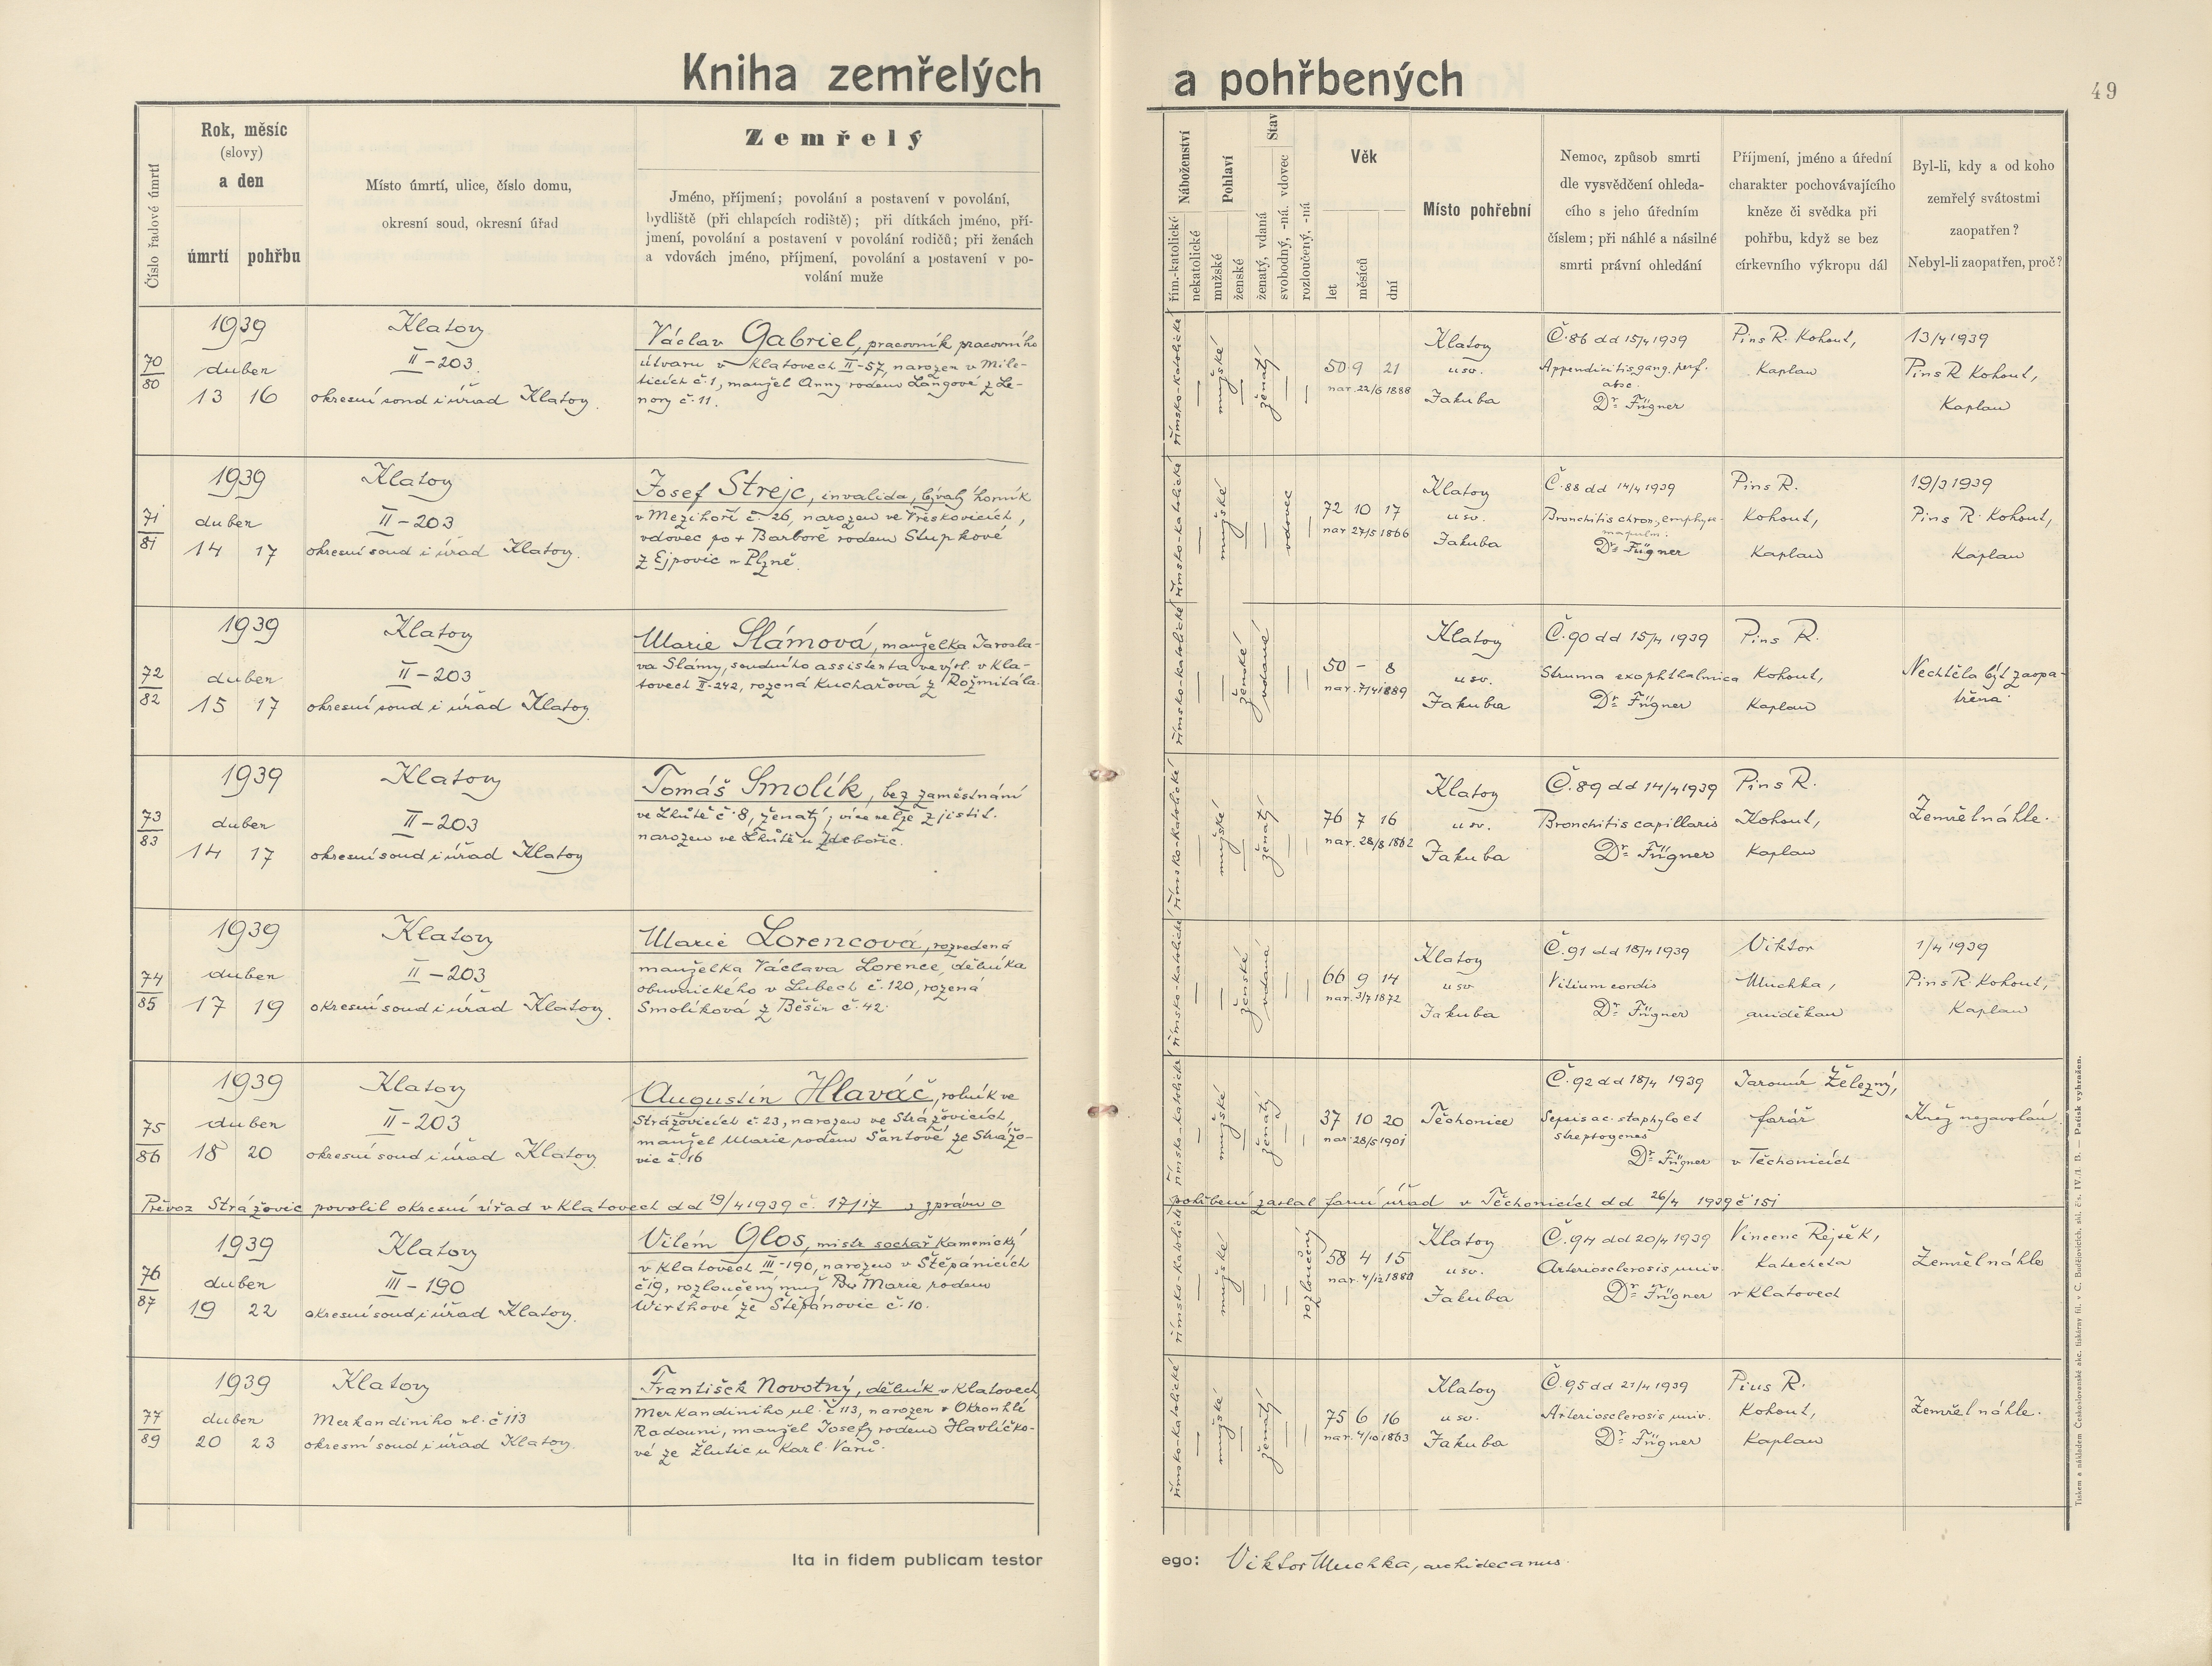 Kniha zemřelých
a pohřbených
49
Číslo řadové úmrtí
Rok, měsíc
(slovy)
a den
úmrtí
pohřbu
Místo úmrtí, ulice, číslo domu,
okresní soud, okresní úřad
Zemřelý
Jméno, příjmení; povolání a postavení v povolání,
bydliště (při chlapcích rodiště); při dítkách jméno, pří-
jmení, povolání a postavení v povolání rodičů; při ženách
a vdovách jméno, příjmení, povolání a postavení v po-
volání muže
Náboženství
řím.-katolické
nekatolické
Pohlaví
mužské
ženské
Stav
ženatý, vdaná
svobodný, -ná. vdovec
rozloučený, -ná
Věk
let
měsíců
dní
Místo pohřební
Nemoc, způsob smrti
dle vysvědčení ohleda-
cího s jeho úředním
číslem; při náhlé a násilné
smrti právní ohledání
Příjmení, jméno a úřední
charakter pochovávajícího
kněze či svědka při
pohřbu, když se bez
církevního výkropu dál
Byl-li, kdy a od koho
zemřelý svátostmi
zaopatřen?
Nebyl-li zaopatřen, proč?
70
80
1939
duben
13 16
Klatovy
II-203.
okresní soud i úřad Klatovy.
Václav Gabriel, pracovník pracovního
útvaru v Klatovech II-57, narozen v Mile-
ticích č.1, manžel Anny rodem Langové z Le-
nory č.11.
římsko-katolické
mužské
ženatý
50 9 21
nar. 22/6 1888
Klatovy
u sv.
Jakuba
Č.86 dd 15/4 1939
Appendicitis gang. perf.
absc.
Dr. Fügner
Pius R. Kohout,
Kaplan
13/4 1939
Pius R Kohout,
Kaplan
71
81
1939
duben
14 17
Klatovy
II-203
okresní soud i úřad Klatovy.
Josef Strejc, invalida, bývalý horník
v Mezihoří č. 26, narozen ve Vřeskovicích,
vdovec po + Barboře rodem Stupkové
z Ejpovic u Plzně.
římsko-katolické
mužské
vdovec
72 10 17
nar 27/5 1866
Klatovy
u sv.
Jakuba
Č.88 dd 14/4 1939
Bronchitis chron, emphyse-
ma pulm.
Dr. Fügner
Pius R.
Kohout,
Kaplan
19/3 1939
Pius R. Kohout,
Kaplan
72
82
1939
duben
15 17
Klatovy
II-203
okresní soud i úřad Klatovy.
Marie Slámová, manželka Jarosla-
va Slámy, soudního assistenta ve výsl. v Kla-
tovech II-242, rozená Kuchařová z Rožmitála.
římsko-katolické
ženské
vdaná
50 - 8
nar. 7/4 1889
Klatovy
u sv.
Jakuba
Č.90 dd 15/4 1939
Struma exophthalmica
Dr. Fügner
Pius R.
Kohout,
Kaplan
Nechtěla být zaopa-
třena.
73
83
1939
duben
14 17
Klatovy
II-203
okresní soud i úřad Klatovy
Tomáš Smolík, bez zaměstnání
ve Lhůtě č.8, ženatý; více nelze zjistit.
narozen ve Lhůtě u Zdebořic.
římsko-katolické
mužské
ženatý
76 7 16
nar. 28/8 1862
Klatovy
u sv.
Jakuba
Č.89 dd 14/4 1939
Bronchitis capillaris
Dr. Fügner
Pius R.
Kohout,
Kaplan
Zemřel náhle.
74
85
1939
duben
17 19
Klatovy
II-203
okresní soud i úřad Klatovy.
Marie Lorencová, rozvedená
manželka Václava Lorence, dělníka
obuvnického v Lubech č.120, rozená
Smolíková z Běšin č.42.
římsko-katolické
ženské
vdaná
66 9 14
nar. 3/7 1872
Klatovy
u sv
Jakuba
Č.91 dd 18/4 1939
Vitium cordis
Dr. Fügner
Viktor
Muchka,
arciděkan
1/4 1939
Pius R. Kohout,
Kaplan
75
86
1939
duben
18 20
Klatovy
II-203
okresní soud i úřad Klatovy
Augustin Hlaváč, rolník ve
Strážovicích č.23, narozen ve Strážovicích,
manžel Marie rodem Šantové ze Strážo-
vic č.16
římsko-katolické
mužské
ženatý
37 10 20
nar. 28/5 1901
Těchonice
Č.92 dd 18/4 1939
Sepsis ac. staphylo et
streptogenes
Dr. Fügner
Jaromír Železný,
farář
v Těchonicích
Kněz nezavolán
Převoz Strážovic povolil okresní úřad v Klatovech dd 19/4 1939 č. 17117, zprávu o
pohřbení zaslal farní úřad v Těchonicích dd 26/4 1939 č 151
76
87
1939
duben
19 22
Klatovy
III-190
okresní soud i úřad Klatovy.
Vilém Glos, mistr sochař kamenický
v Klatovech III-190, narozen v Štěpánicích
č19, rozloučený muž Marie rodem
Wirthové ze Štěpánovic č.10.
římsko-katolické
mužské
rozloučený
58 4 15
nar. 4/12 1880
Klatovy
u sv.
Jakuba
Č.94 dd 20/4 1939
Arteriosclerosis univ.
Dr. Fügner
Vincenc Rejsek,
Katecheta
v Klatovech
Zemřel náhle
77
89
1939
duben
20 23
Klatovy
Merkandiniho ul. č 113
okresní soud i úřad Klatovy.
František Novotný, dělník v Klatovech
Merkandiniho ul. č 113, narozen v Okrouhlé
Radouni, manžel Josefy rodem Havlíčko-
vé ze Žlutic u Karl. Varů.
římsko-katolické
mužské
ženatý
75 6 16
nar. 4/10 1863
Klatovy
u sv.
Jakuba
Č.95 dd 21/4 1939
Arteriosclerosis univ.
Dr. Fügner
Pius R.
Kohout,
Kaplan
Zemřel náhle.
Ita in fidem publicam testor
ego: Viktor Muchka, archidecanus.
Tiskem a nákladem Českoslovanské akc. tiskárny fil. v C. Budějovicích. skl. čís. IV./I. B. — Patisk vyhražen.